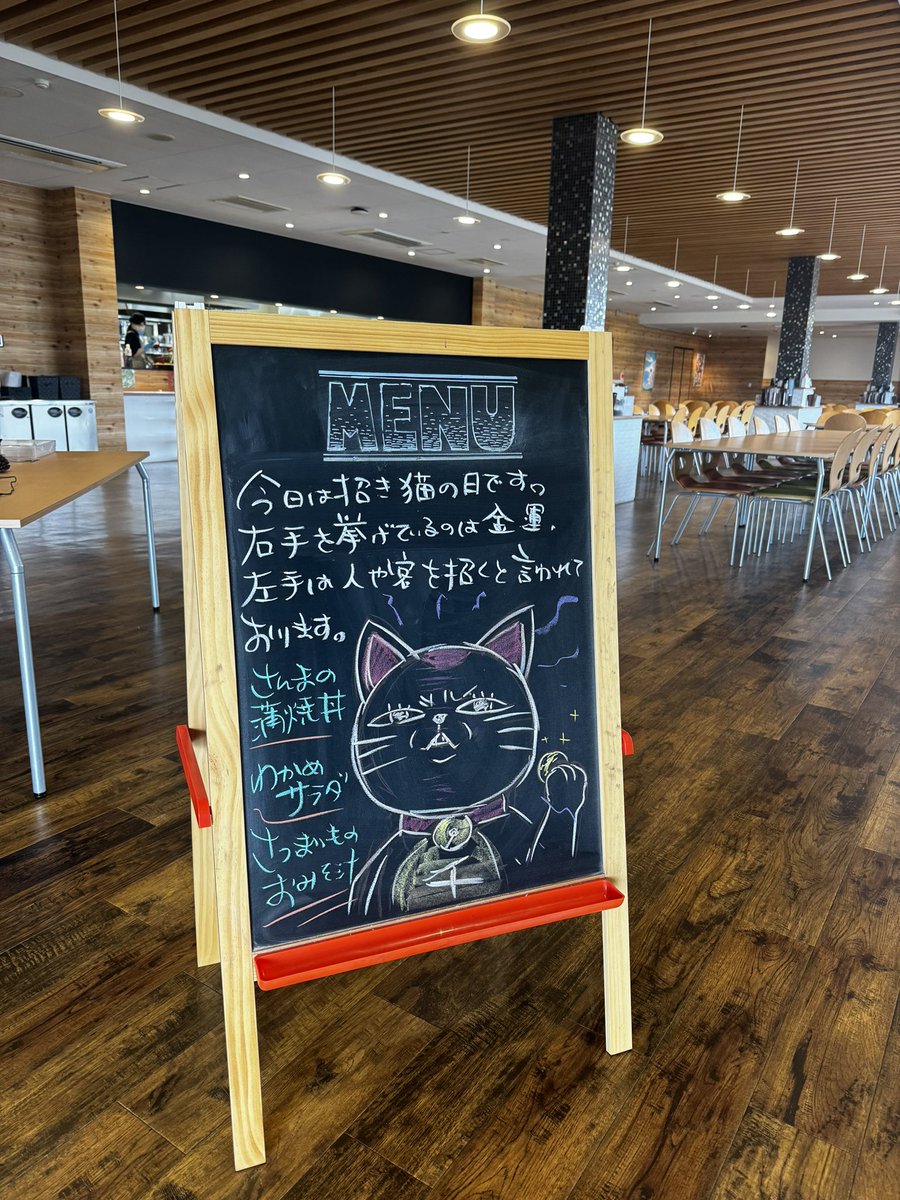 MENU
今日は招き猫の日です。
右手を挙げているのは金運、
左手は人や客を招くと言われて
おります。
さんまの
蒲焼丼
わかめ
サラダ
さつまいもの
おみそ汁
千